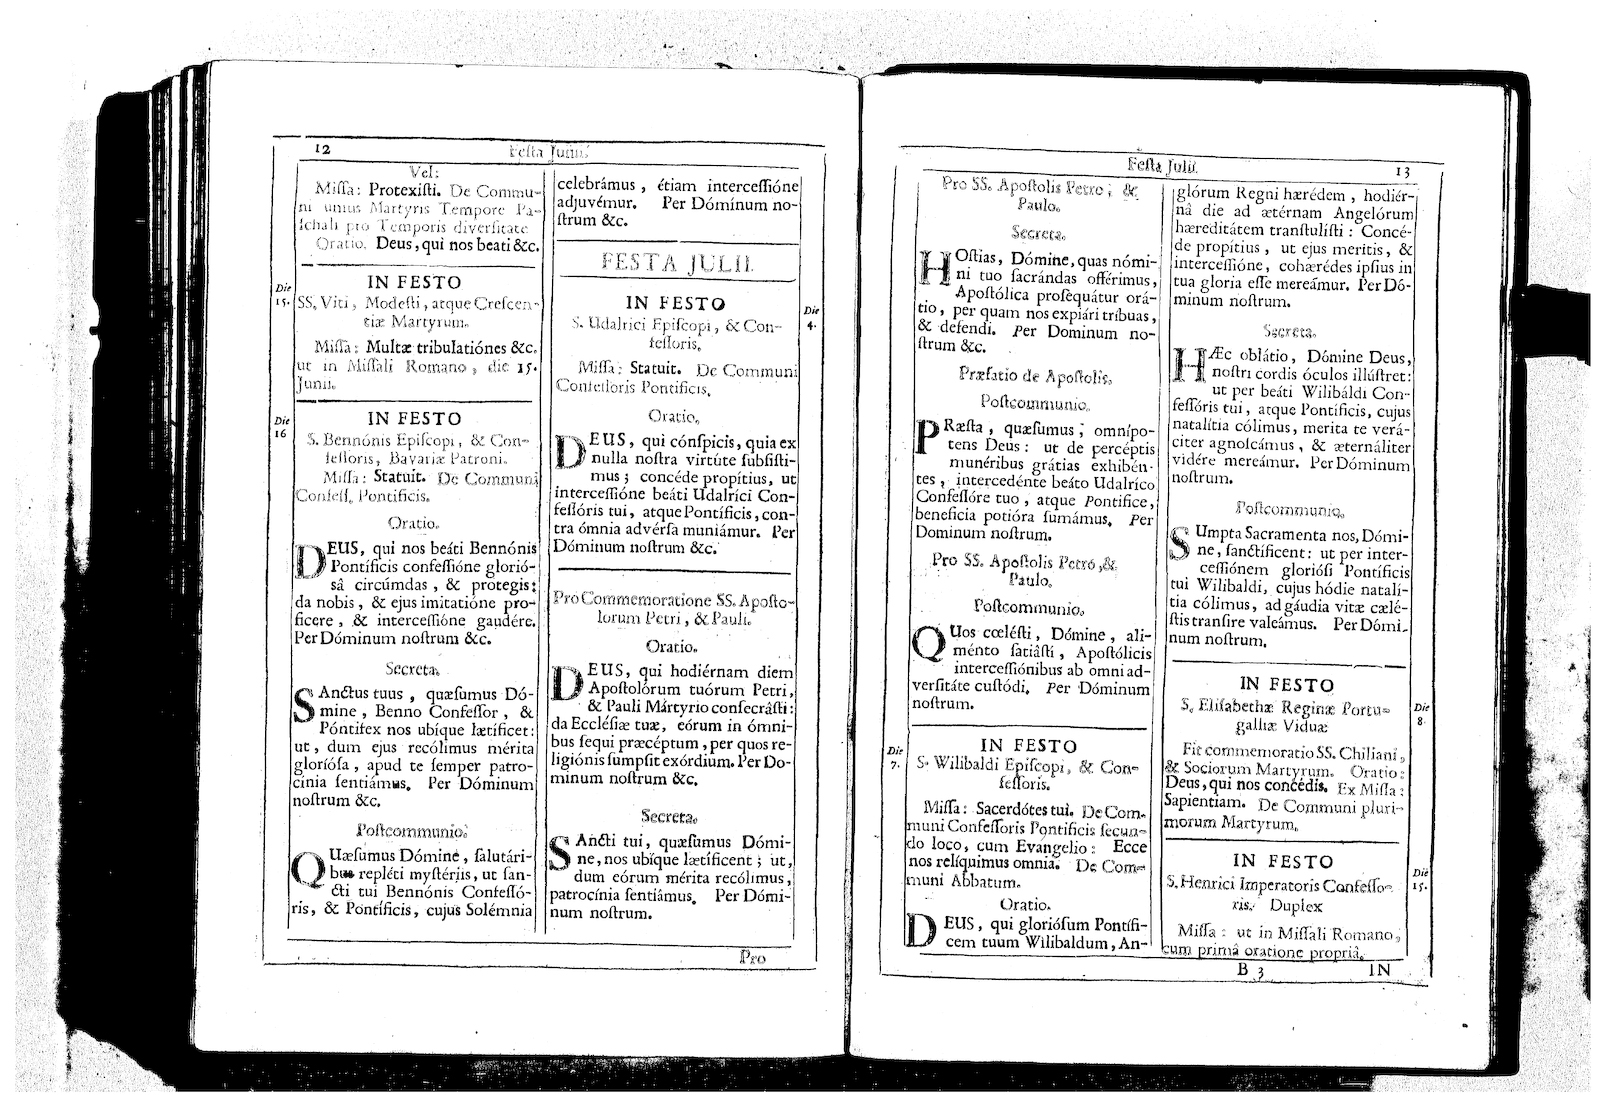 12
Feſta Junii.
Vel:
Miſſa: Protexiſti. De Commu-
ni unius Martyris Tempore Pa-
ſchali pro Temporis diverſitate
Oratio. Deus, qui nos beati &c.
IN FESTO
Die
15.
SS. Viti, Modeſti, atque Creſcen-
tiæ Martyrum.
Miſſa: Multæ tribulatiónes &c.
ut in Miſſali Romano, die 15.
Junii.
IN FESTO
Die
16
S. Bennónis Epiſcopi, & Con-
feſſoris, Bavariæ Patroni.
Miſſa: Statuit. De Communi
Confeſſ. Pontificis.
Oratio.
DEUS, qui nos beáti Bennónis
Pontíficis confeſſióne glorió-
sâ circúmdas, & protegis:
da nobis, & ejus imitatióne pro-
ficere, & interceſſióne gaudére.
Per Dóminum noſtrum &c.
Secreta.
SAnctus tuus, quæſumus Dó-
mine, Benno Confeſſor, &
Póntifex nos ubíque lætíficet:
ut, dum ejus recólimus mérita
glorióſa, apud te ſemper patro-
cínia ſentiámus. Per Dóminum
noſtrum &c.
Poſtcommunio.
QUæſumus Dómine, ſalutári-
bus repléti myſtériis, ut ſan-
cti tui Bennónis Confeſſó-
ris, & Pontíficis, cujus Solémnia
celebrámus, étiam interceſſióne
adjuvémur. Per Dóminum no-
ſtrum &c.
FESTA JULII.
IN FESTO
Die
4.
S. Udalrici Epiſcopi, & Con-
feſſoris.
Miſſa: Statuit. De Communi
Confeſſoris Pontificis.
Oratio.
DEUS, qui cónſpicis, quia ex
nulla noſtra virtúte ſubſiſti-
mus; concéde propítius, ut
interceſſióne beáti Udalríci Con-
feſſóris tui, atque Pontíficis, con-
tra ómnia advérſa muniámur. Per
Dóminum noſtrum &c.
Pro Commemoratione SS. Apoſto-
lorum Petri, & Pauli.
Oratio.
DEUS, qui hodiérnam diem
Apoſtolórum tuórum Petri,
& Pauli Mártyrio conſecráſti:
da Eccléſiæ tuæ, eórum in ómni-
bus ſequi præcéptum, per quos re-
ligiónis ſumpſit exórdium. Per Do-
minum noſtrum &c.
Secreta.
SAncti tui, quæſumus Dómi-
ne, nos ubíque lætíficent; ut,
dum eórum mérita recólimus,
patrocínia ſentiámus. Per Dómi-
num noſtrum.
Pro
Feſta Julii.
13
Pro SS. Apoſtolis Petro, &
Paulo.
Secreta.
HOſtias, Dómine, quas nómi-
ni tuo ſacrándas offérimus,
Apoſtólica proſequátur orá-
tio, per quam nos expiári tríbuas,
& defendi. Per Dominum no-
ſtrum &c.
Præfatio de Apoſtolis.
Poſtcommunio.
PRæſta, quæſumus, omnípo-
tens Deus: ut de percéptis
munéribus grátias exhibén-
tes, intercedénte beáto Udalríco
Confeſſóre tuo, atque Pontífice,
beneficia potióra ſumámus. Per
Dominum noſtrum.
Pro SS. Apoſtolis Petro, &
Paulo.
Poſtcommunio.
QUos cœléſti, Dómine, ali-
ménto ſatiáſti, Apoſtólicis
interceſſiónibus ab omni ad-
verſitáte cuſtódi. Per Dóminum
noſtrum.
IN FESTO
Die
7.
S. Wilibaldi Epiſcopi, & Con-
feſſoris.
Miſſa: Sacerdótes tui. De Com-
muni Confeſſoris Pontificis ſecun-
do loco, cum Evangelio: Ecce
nos relíquimus omnia. De Com-
muni Abbatum.
Oratio.
DEUS, qui glorióſum Pontífi-
cem tuum Wilibaldum, An-
glórum Regni hærédem, hodiér-
nâ die ad ætérnam Angelórum
hæreditátem tranſtulíſti: Concé-
de propítius, ut ejus meritis, &
interceſſióne, cohærédes ipſius in
tua gloria eſſe mereámur. Per Dó-
minum noſtrum.
Secreta.
HÆc oblátio, Dómine Deus,
noſtri cordis óculos illúſtret:
ut per beáti Wilibáldi Con-
feſſóris tui, atque Pontíficis, cujus
natalítia cólimus, merita te verá-
citer agnoſcámus, & æternáliter
vidére mereámur. Per Dóminum
noſtrum.
Poſtcommunio.
SUmpta Sacramenta nos, Dómi-
ne, ſanctíficent: ut per inter-
ceſſiónem glorióſi Pontíficis
tui Wilibaldi, cujus hódie natalí-
tia cólimus, ad gáudia vitæ cælé-
ſtis tranſire valeámus. Per Dómi-
num noſtrum.
IN FESTO
Die
8.
S. Eliſabethæ Reginæ Portu-
galliæ Viduæ
Fit commemoratio SS. Chiliani,
& Sociorum Martyrum. Oratio:
Deus, qui nos concédis. Ex Miſſa:
Sapientiam. De Communi pluri-
morum Martyrum.
IN FESTO
Die
15.
S. Henrici Imperatoris Confeſſo-
ris. Duplex
Miſſa: ut in Miſſali Romano,
cum primâ oratione propriâ.
B 3
IN